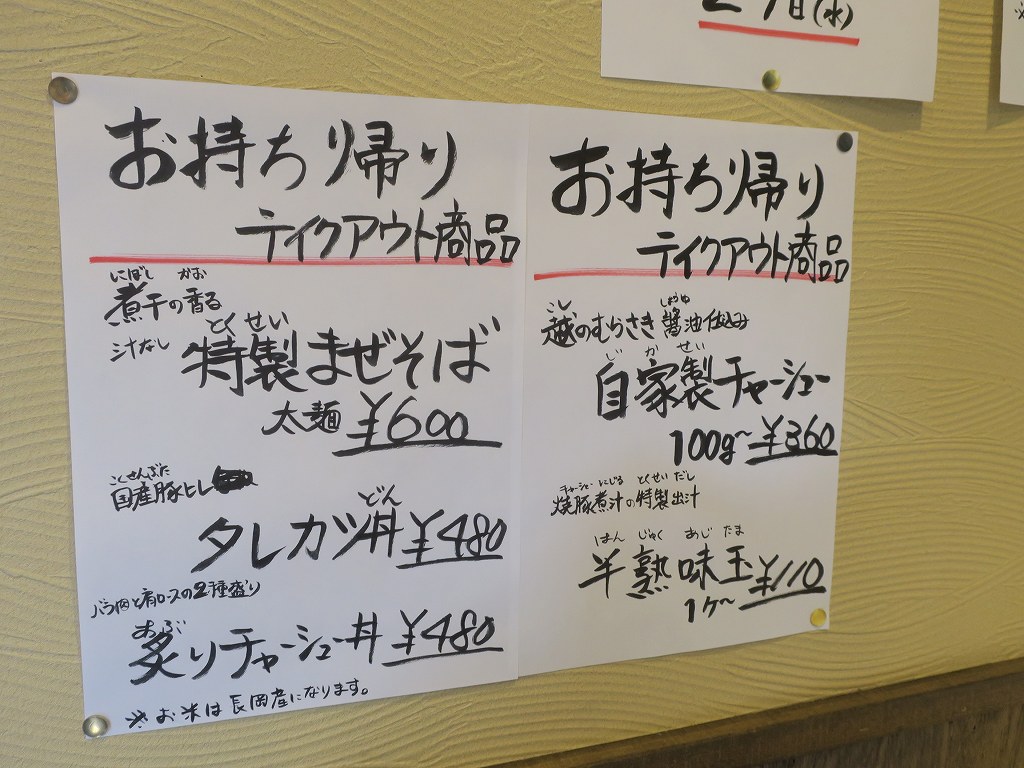 29日(水)
お持ち帰り
テイクアウト商品
にぼし かお
煮干の香る
とくせい
汁なし 特製まぜそば
太麺 ¥600
こくさんぶた
国産豚ヒレ
どん
タレカツ丼 ¥480
バラ肉と肩ロースの2種盛り
あぶ
炙りチャーシュー丼 ¥480
※お米は長岡産になります。
お持ち帰り
テイクアウト商品
こし しょうゆ
越のむらさき 醤油仕込み
じかせい
自家製チャーシュー
100g~ ¥360
チャーシュー にじる とくせい だし
焼豚煮汁の特製出汁
はん じゅく あじ たま
半熟味玉 ¥110
1ケ~